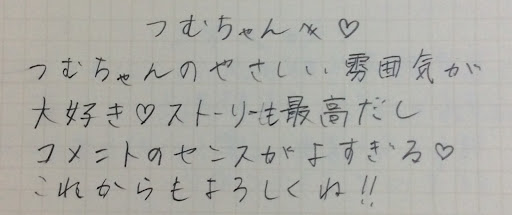 つむちゃん𝄪♡
つむちゃんのやさしい雰囲気が
大好き♡ストーリーも最高だし
コメントのセンスがよすぎる♡
これからもよろしくね!!